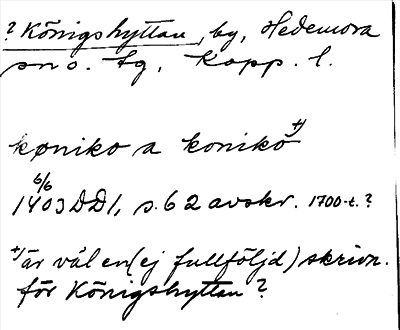 ? Königshyttan, by, Hedemora
sn o. tg, Kopp. l.
køniko a konikö +)
6/6
1403 DD1, s. 62 avskr. 1700-t. ?
+) är väl en (ej fullföljd) skrivn.
för Königshyttan ?